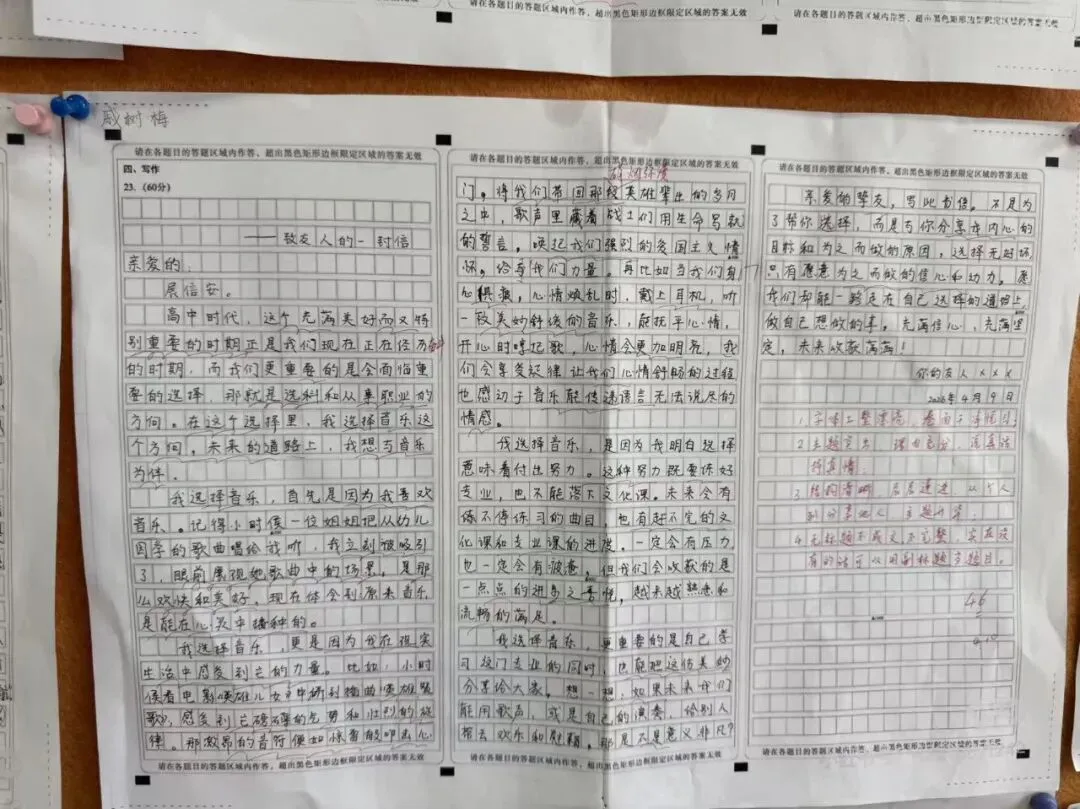 请在各题目的答题区域内作答，超出黑色矩形边框限定区域的答案无效
请在各题目的答题区域内作答，超出黑色矩形边框限定区域的答案无效
戚树梅
请在各题目的答题区域内作答，超出黑色矩形边框限定区域的答案无效
四、写作
23.（60分）
——致友人的一封信
亲爱的：
展信安。
高中时代，这个充满美好而又特
别重要的时期正是我们现在正在经历
的时期，而我们更重要的是会面临重
要的选择，那就是选科和从事职业的
方向。在这个选择里，我选择音乐这
个方向。未来的道路上，我想与音乐
为伴。
我选择音乐，首先是因为我喜欢
音乐。记得小时候一位姐姐把从幼儿
园学的歌曲唱给我听，我立刻被吸引
了，眼前展现她歌曲中的场景，是那
么欢快和美好，现在体会到原来音乐
是能在心灵中播种的。
我选择音乐，更是因为我在现实
生活中感受到它的力量。比如，小时
候看电影《英雄儿女》中听到插曲《英雄赞
歌》，感受到它磅礴的气势和壮烈的旋
律。那激昂的音符便如惊雷般叩击心
请在各题目的答题区域内作答，超出黑色矩形边框限定区域的答案无效
请在各题目的答题区域内作答，超出黑色矩形边框限定区域的答案无效
门。将我们带回那段英雄辈出的岁月
之中，歌声里藏着战士们用生命写就
的誓言，唤起我们强烈的爱国主义情
怀，给予我们力量。再比如当我们身
心俱疲，心情烦乱时，戴上耳机，听
一段美妙舒缓的音乐，能抚平心情，
开心时哼起歌，心情会更加明亮，我
们会享受旋律让我们心情舒畅的过程
也感动于音乐能传递语言无法说尽的
情感。
我选择音乐，是因为我明白选择
意味着付出努力。这种努力既要练好
专业，也不能落下文化课。未来会有
练不停练习的曲目，也有赶不完的文
化课和专业课的进度。一定会有压力，
也一定会有疲惫，但我们会收获的是
一点点的进步之喜悦，越来越熟悉和
流畅的满足。
我选择音乐，更重要的是自己学
习这门专业的同时，也能把这份美妙
分享给大家。想一想，如果未来我们
能用歌声，或是自己的演奏，给别人
带去欢乐和慰藉，那是不是意义非凡？
请在各题目的答题区域内作答，超出黑色矩形边框限定区域的答案无效
请在各题目的答题区域内作答，超出黑色矩形边框限定区域的答案无效
亲爱的挚友，写此书信。不是为
了帮你选择，而是与你分享我内心的
目标和为之而做的原因，选择无好坏，
只有愿意为之而做的信心和动力。愿
我们都能一路走在自己选择的道路上，
做自己想做的事。充满信心，充满坚
定，未来收获满满！
你的友人×××
2026年4月9日
1. 字体工整漂亮，卷面干净
2 主题突出，理由充分，
挚真情；
3 结构清晰，层层递进，从个人
到分享他人，主题升华；
4 无标题不成文不完整，实在没
有的话可以用副标题当题目。
46
请在各题目的答题区域内作答，超出黑色矩形边框限定区域的答案无效